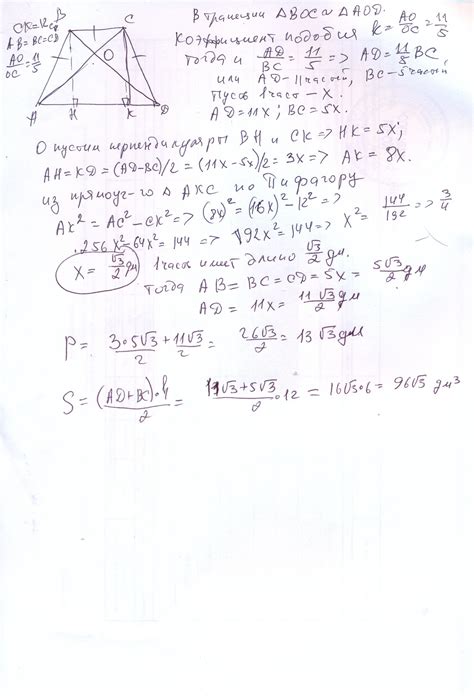 В трапеции ΔBOC ~ ΔAOD.
CK=12
AB=BC=CD
AO/OC=11/5
B
C
O
A
H
K
D
Коэффициент подобия k=AO/OC=11/5
тогда и AD/BC=11/5=>AD=11/5 BC,
или AD-11 частей, BC-5 частей
Пусть 1 часть - x.
AD=11x; BC=5x.
Опустим перпендикуляры BH и CK=>HK=5x;
AH=KD=(AD-BC)/2=(11x-5x)/2=3x=>AK=8x.
из прямоуг-го Δ AKC по Пифагору
AK²=AC²-CK²=>(8x)²=(16x)²-12²=>
256x²-64x²=144=>192x²=144=>x²=144/192=>3/4
x=√3/2 дм
1 часть имеет длину √3/2 дм.
тогда AB=BC=CD=5x=5√3/2 дм
AD=11x=11√3/2 дм
P=3·5√3+11√3/2=26√3/2=13√3 дм
S=(AD+BC)·h/2=11√3+5√3/2·12=16√3·6=96√3 дм³